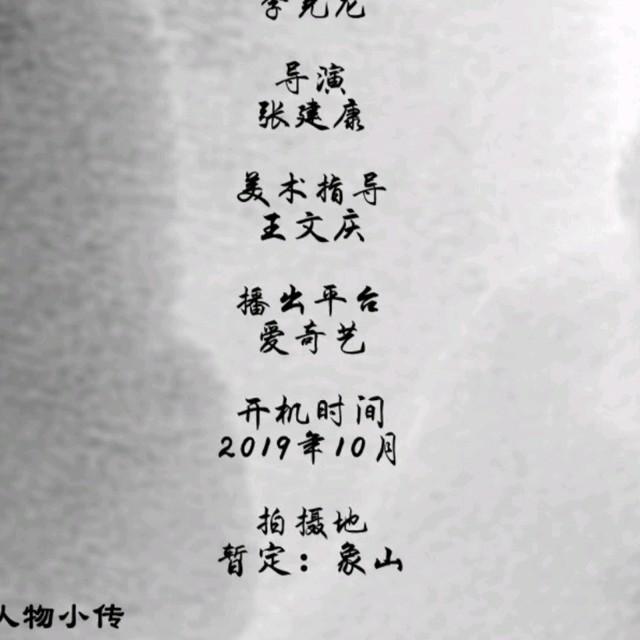 导演
张建康
美术指导
王文庆
播出平台
爱奇艺
开机时间
2019年10月
拍摄地
暂定：象山
人物小传